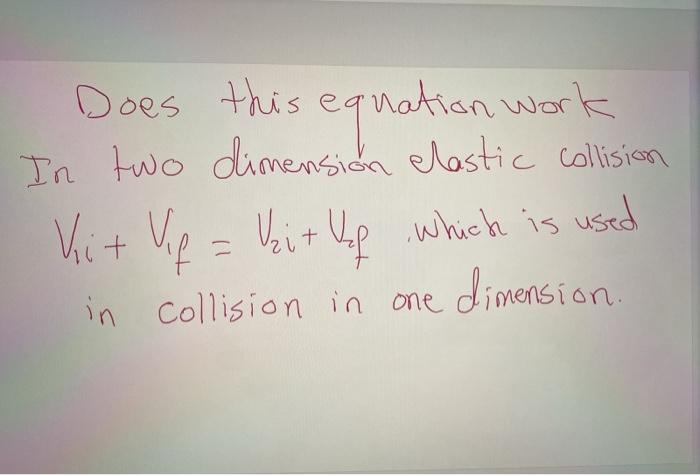 Does this equation work
In two dimension elastic collision
V₁i + V₁f = V₂i + V₂f . which is used
in collision in one dimension.